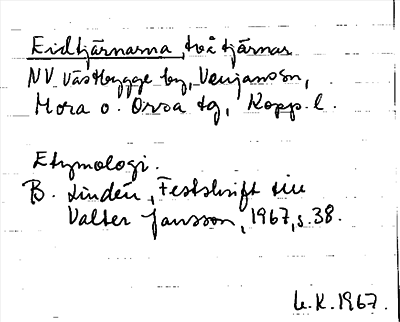 Eidtjärnarna, två tjärnar
NV Västbygge by, Venjans sn,
Mora o. Orsa tg, Kopp. l.
Etymologi.
B. Lindén, Festskrift till
Valter Jansson, 1967, s. 38.
L.K. 1967.